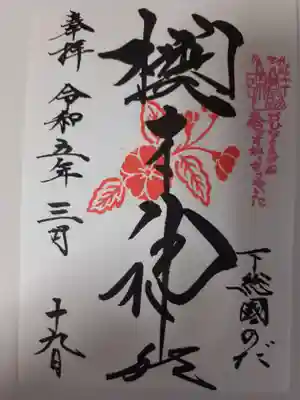 下総國のだ
櫻木神社
奉拝 令和五年三月十九日